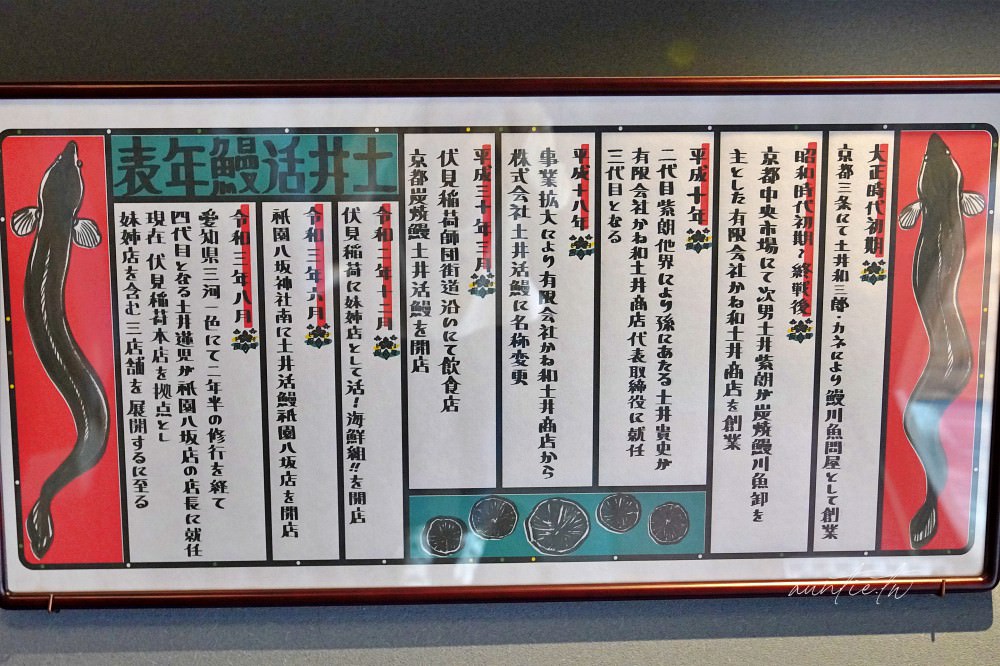 大正時代初期
京都三条にて土井和三郎・カネにより鰻川魚問屋として創業
昭和時代初期〜終戦後
京都中央市場にて次男土井紫朗が炭焼鰻川魚卸を
主とした有限会社かね和土井商店を創業
平成十年
二代目紫朗他界により孫にあたる土井貴史が
有限会社かね和土井商店代表取締役に就任
三代目となる
平成十八年
事業拡大により有限会社かね和土井商店から
株式会社土井活鰻に名称変更
平成三十年三月
伏見稲荷師団街道沿いにて飲食店
京都炭焼鰻土井活鰻を開店
土井活鰻年表
令和二年十二月
伏見稲荷に妹姉店として活!海鮮組!!を開店
令和三年六月
祇園八坂神社南に土井活鰻祇園八坂店を開店
令和三年八月
愛知県三河一色にて二年半の修行を経て
四代目となる土井蓮児が祇園八坂店の店長に就任
現在 伏見稲荷本店を拠点とし
妹姉店を含む三店舗を展開するに至る
auntie.tw